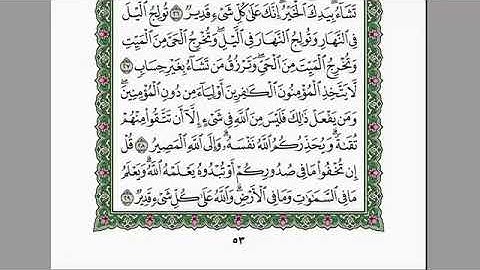 تَشَآءُۖ بِيَدِكَ ٱلْخَيْرُۖ إِنَّكَ عَلَىٰ كُلِّ شَىْءٍ قَدِيرٌ ٢٦ تُولِجُ ٱلَّيْلَ
فِى ٱلنَّهَارِ وَتُولِجُ ٱلنَّهَارَ فِى ٱلَّيْلِۖ وَتُخْرِجُ ٱلْحَىَّ مِنَ ٱلْمَيِّتِ
وَتُخْرِجُ ٱلْمَيِّتَ مِنَ ٱلْحَىِّۖ وَتَرْزُقُ مَن تَشَآءُ بِغَيْرِ حِسَابٍ ٢٧
لَّا يَتَّخِذِ ٱلْمُؤْمِنُونَ ٱلْكَٰفِرِينَ أَوْلِيَآءَ مِن دُونِ ٱلْمُؤْمِنِينَۖ
وَمَن يَفْعَلْ ذَٰلِكَ فَلَيْسَ مِنَ ٱللَّهِ فِى شَىْءٍ إِلَّآ أَن تَتَّقُوا۟ مِنْهُمْ
تُقَىٰةًۗ وَيُحَذِّرُكُمُ ٱللَّهُ نَفْسَهُۥۗ وَإِلَى ٱللَّهِ ٱلْمَصِيرُ ٢٨ قُلْ
إِن تُخْفُوا۟ مَا فِى صُدُورِكُمْ أَوْ تُبْدُوهُ يَعْلَمْهُ ٱللَّهُۗ وَيَعْلَمُ
مَا فِى ٱلسَّمَٰوَٰتِ وَمَا فِى ٱلْأَرْضِۗ وَٱللَّهُ عَلَىٰ كُلِّ شَىْءٍ قَدِيرٌ ٢٩
٥٣